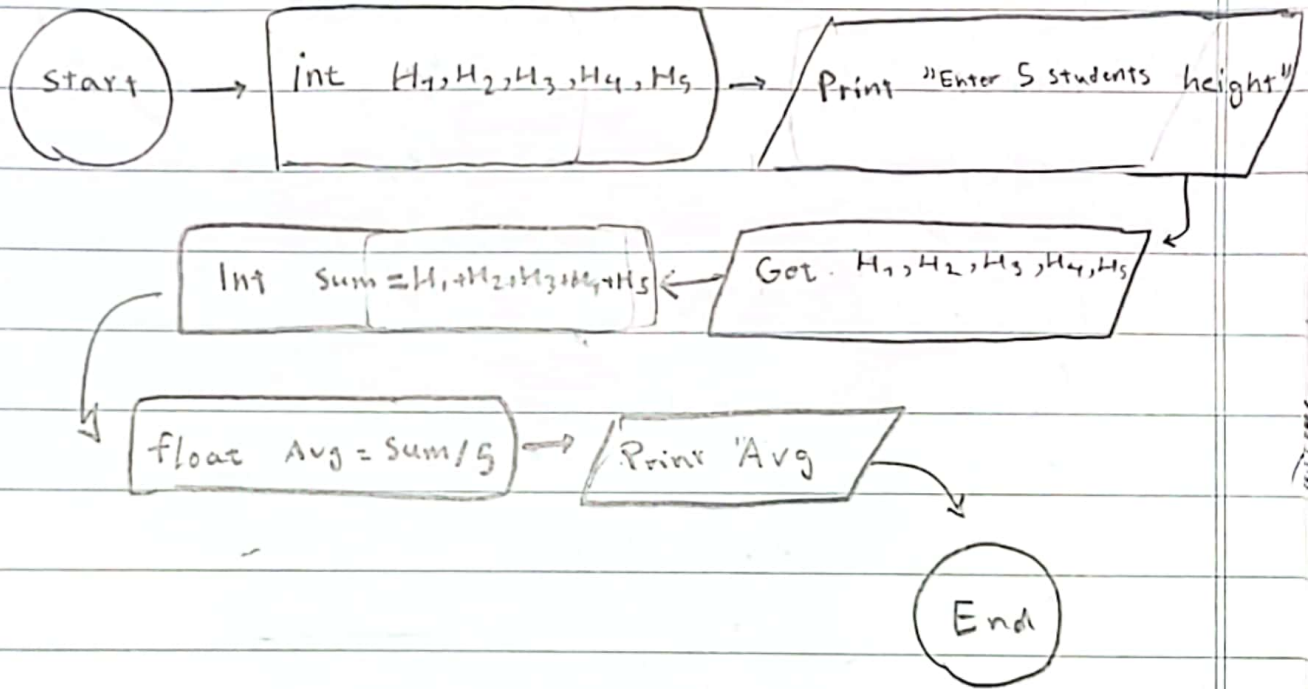 Start
int H1, H2, H3, H4, H5
Print "Enter 5 students height"
Get H1, H2, H3, H4, H5
Int Sum = H1+H2+H3+H4+H5
float Avg = Sum/5
Print "Avg
End